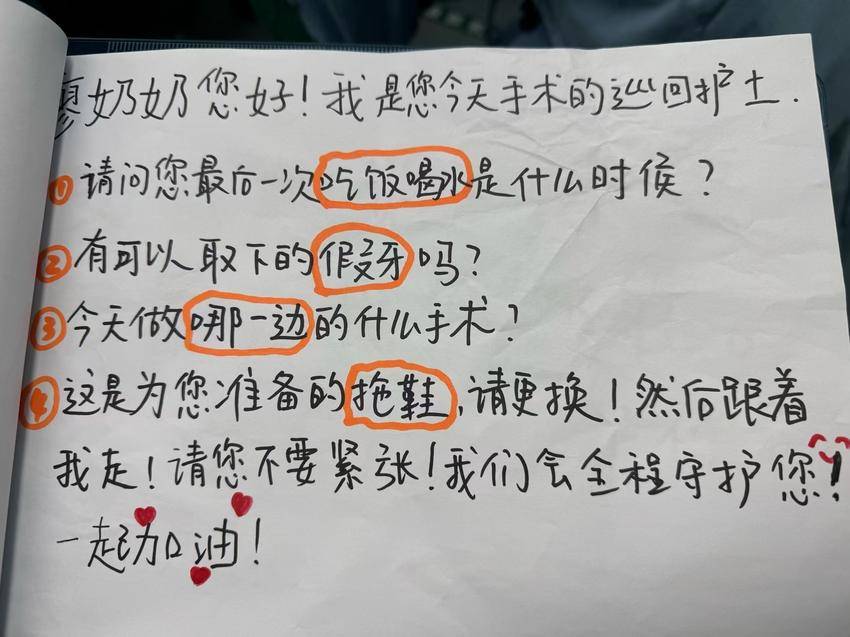 廖奶奶您好！我是您今天手术的巡回护士.
①请问您最后一次吃饭喝水是什么时候？
②有可以取下的假牙吗？
③今天做哪一边的什么手术？
④这是为您准备的拖鞋,请更换！然后跟着
我走！请您不要紧张！我们会全程守护您！
一起加油！